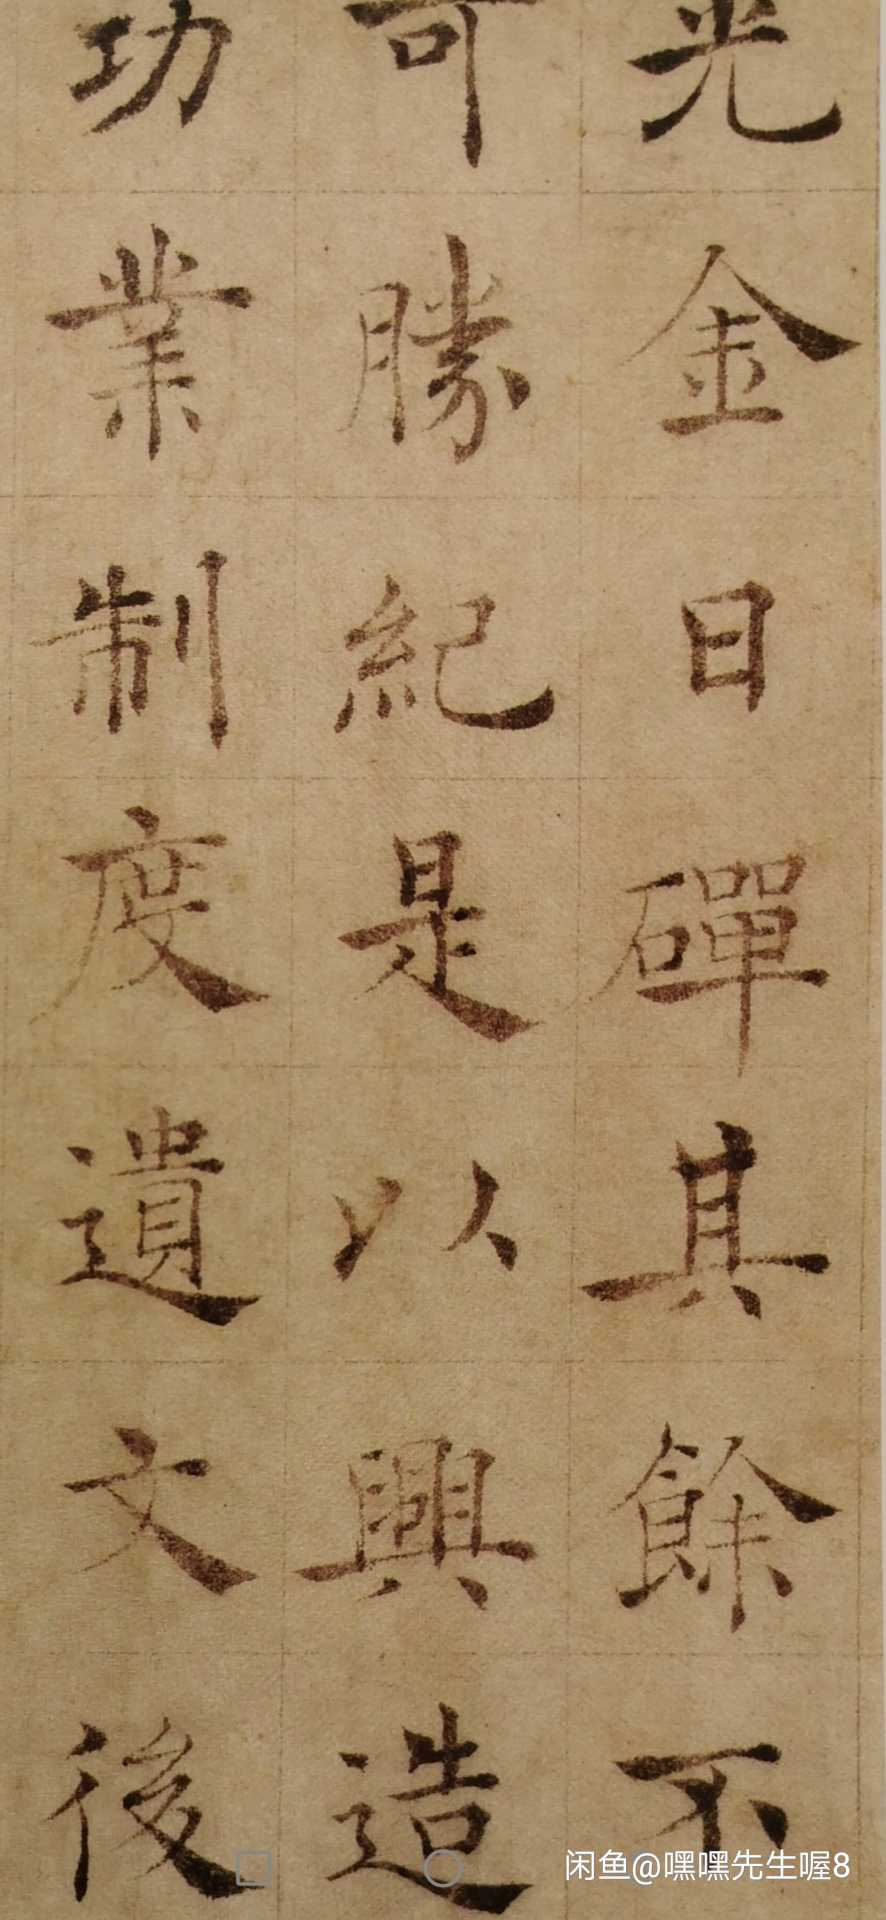 光金日磾其餘不
可勝紀是以興造
功業制度遺文後
闲鱼@嘿嘿先生喔8